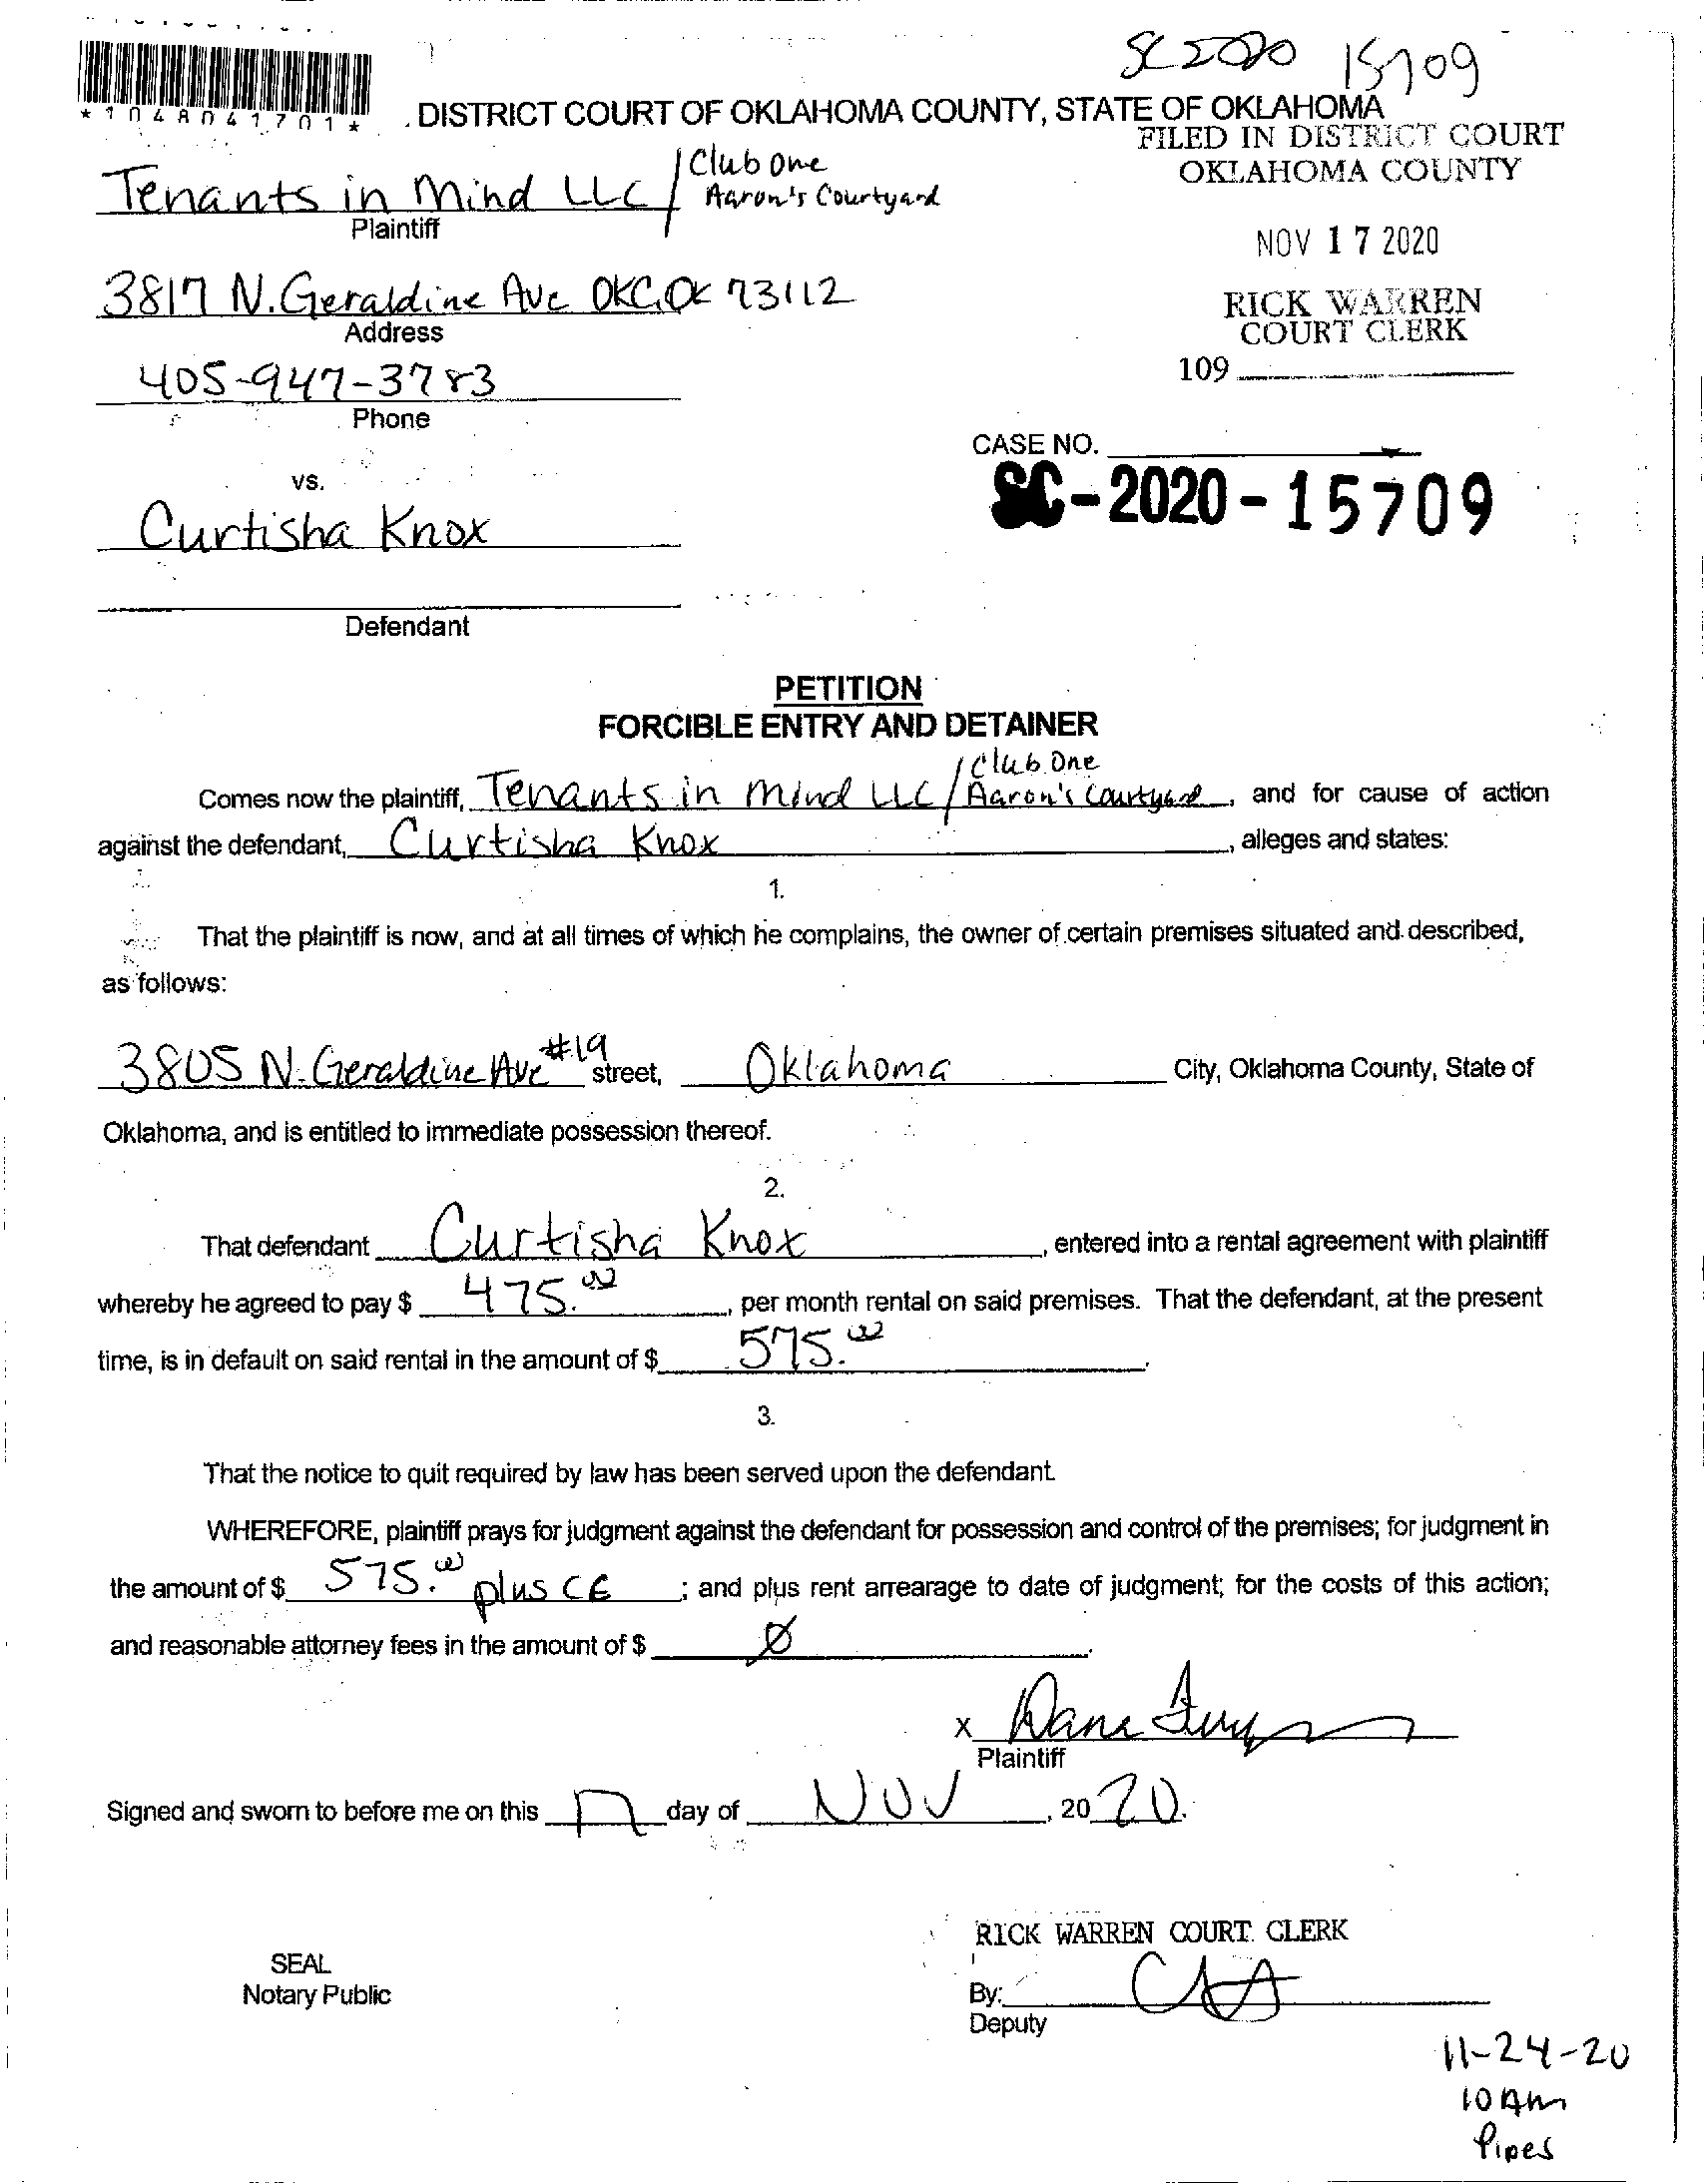 SC 2020 15709
*1048041701*
DISTRICT COURT OF OKLAHOMA COUNTY, STATE OF OKLAHOMA
FILED IN DISTRICT COURT
OKLAHOMA COUNTY
Tenants in Mind LLC / Club One
Aaron's Courtyard
Plaintiff
NOV 17 2020
3817 N. Geraldine Ave OKC, OK 73112
Address
RICK WARREN
COURT CLERK
405-947-3783
109
Phone
CASE NO.
vs.
SC-2020-15709
Curtisha Knox
Defendant
PETITION
FORCIBLE ENTRY AND DETAINER
Club One
Comes now the plaintiff, Tenants in Mind LLC / Aaron's Courtyard, and for cause of action
against the defendant, Curtisha Knox, alleges and states:
1.
That the plaintiff is now, and at all times of which he complains, the owner of certain premises situated and described,
as follows:
3805 N. Geraldine Ave #19 street, Oklahoma City, Oklahoma County, State of
Oklahoma, and is entitled to immediate possession thereof.
2.
That defendant Curtisha Knox, entered into a rental agreement with plaintiff
whereby he agreed to pay $ 475.00, per month rental on said premises. That the defendant, at the present
time, is in default on said rental in the amount of $ 575.00.
3.
That the notice to quit required by law has been served upon the defendant.
WHEREFORE, plaintiff prays for judgment against the defendant for possession and control of the premises; for judgment in
the amount of $ 575.00 plus CE; and plus rent arrearage to date of judgment; for the costs of this action;
and reasonable attorney fees in the amount of $ Ø.
x Dana
Plaintiff
Signed and sworn to before me on this 17 day of Nov, 2020.
RICK WARREN COURT CLERK
SEAL
Notary Public
By:
Deputy
11-24-20
10 AM
Pipes